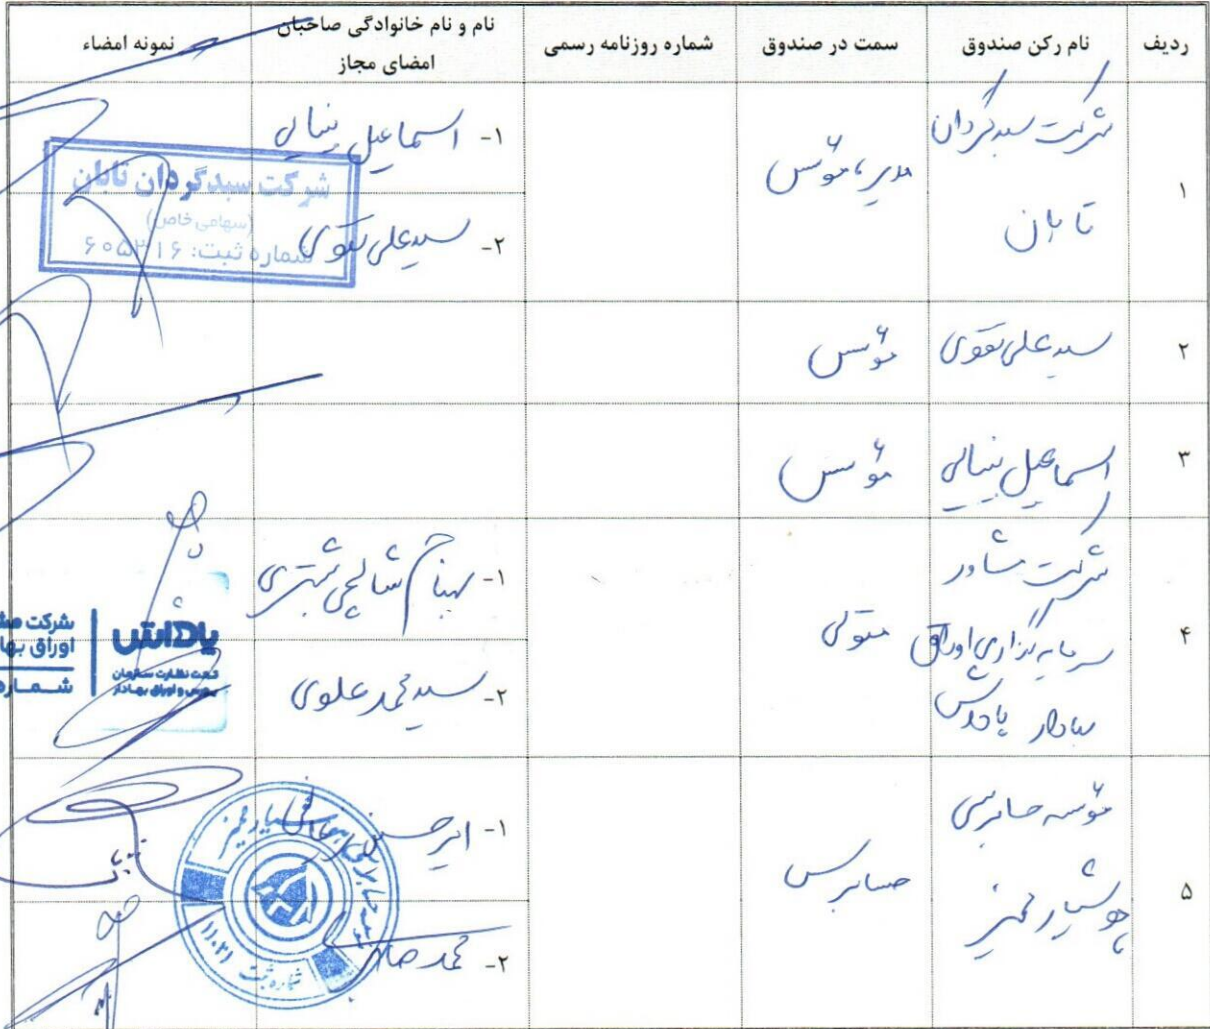 ردیف
نام رکن صندوق
سمت در صندوق
شماره روزنامه رسمی
نام و نام خانوادگی صاحبان
امضای مجاز
نمونه امضاء
۱
شرکت سبدگردان
تابان
مدیر، مؤسس
۱- اسماعیل
۲- سیدعلی تقوی
شرکت سبدگردان تابان
(سهامی خاص)
شماره ثبت: ۶۰۵۳۱۶
۲
سیدعلی تقوی
مؤسس
۳
اسماعیل
مؤسس
۴
شرکت مشاور
سرمایه‌گذاری اوراق
بهادار پاداش
متولی
۱- بهنام شالچی شبستری
۲- سیدمحمد علوی
پاداش
تحت نظارت سازمان
بورس و اوراق بهادار
شرکت
اوراق
۵
مؤسسه حسابرسی
هوشیار ممیز
حسابرس
۱- امیرحسین
۲- محمد صابر
هوشیار ممیز
شماره ثبت ۱۱۰۲۱